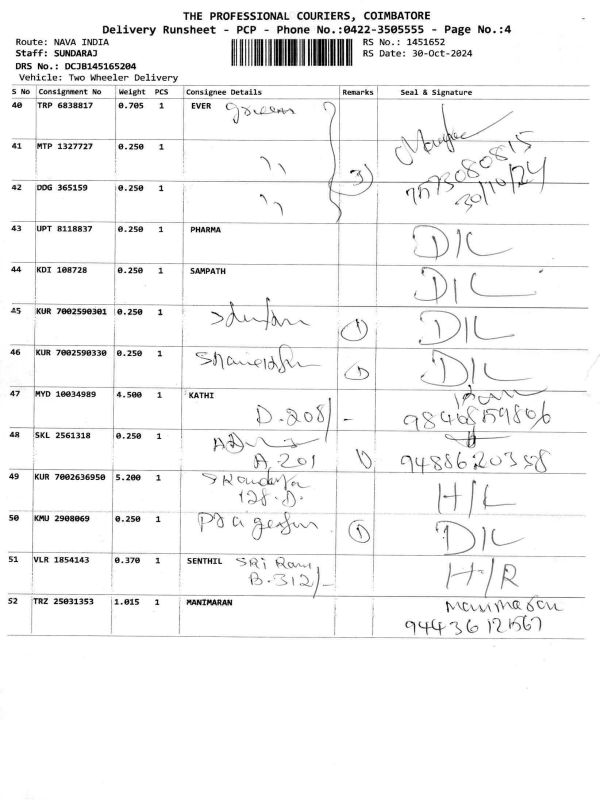 THE PROFESSIONAL COURIERS, COIMBATORE
Delivery Runsheet - PCP - Phone No.:0422-3505555 - Page No.:4
Route: NAVA INDIA RS No.: 1451652
Staff: SUNDARAJ RS Date: 30-Oct-2024
DRS No.: DCJB145165204
Vehicle: Two Wheeler Delivery
S No Consignment No Weight PCS Consignee Details Remarks Seal & Signature
40 TRP 6838817 0.705 1 EVER green
41 MTP 1327727 0.250 1 ,, 3 7573080815
42 DDG 365159 0.250 1 ,, 30/10/24
43 UPT 8118837 0.250 1 PHARMA D/L
44 KDI 108728 0.250 1 SAMPATH D/L
45 KUR 7002590301 0.250 1 1 D/L
46 KUR 7002590330 0.250 1 1 D/L
47 MYD 10034989 4.500 1 KATHI
D.208/-
48 SKL 2561318 0.250 1
A.201 1)
49 KUR 7002636950 5.200 1 H/L
128.D.
50 KMU 2908069 0.250 1 1 D/L
51 VLR 1854143 0.370 1 SENTHIL SRI Ram H/R
B.312/-
52 TRZ 25031353 1.015 1 MANIMARAN Manimaran